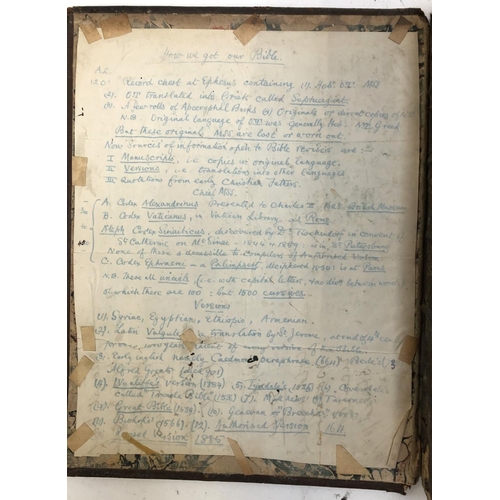 How we got our Bible.
A.D.
120. Record chest at Ephesus containing (1). O.T. MSS
(2). O.T. translated into Greek called Septuagint.
(3). A few rolls of Apocryphal Books (4) Originals or copies of
N.B. Original language of O.T. was generally Heb. N.T. Greek
But these original MSS are lost or worn out.
Now Sources of information open to Bible revisers are :-
I Manuscripts, i.e. copies in original language,
II Versions, i.e. translations into other languages.
III Quotations from early Christian Fathers.
Chief MSS.
A. Codex Alexandrinus Presented to Charles I British Museum
B. Codex Vaticanus, in Vatican Library in Rome
Aleph Codex Sinaiticus, discovered by Dr Tischendorf in Convent of
St Catherine on Mt Sinai - 1844 & 1859. is in St Petersburg
None of these accessible to Compilers of Authorised Version
C. Codex Ephraem - a Palimpsest, deciphered is at Paris
N.B. These all uncials (i.e. with capital letters,
of which there are 100: but 1500 cursives.
Versions
(1). Syrian, Egyptian, Ethiopic, Armenian.
(2). Latin Vulgate, a translation by St Jerome, at end of 4th century
3. Early English namely Caedmon's paraphrase, Bede's
Alfred Great's (died 901)
(4). Wycliffe's Version (1384) (5). Tyndale's, 1525 (6). Coverdale
called (7).
Great Bible (1539). Genevan or "Breeches"
Bishops' (1568) (12). Authorised Version 1611
Version 1885